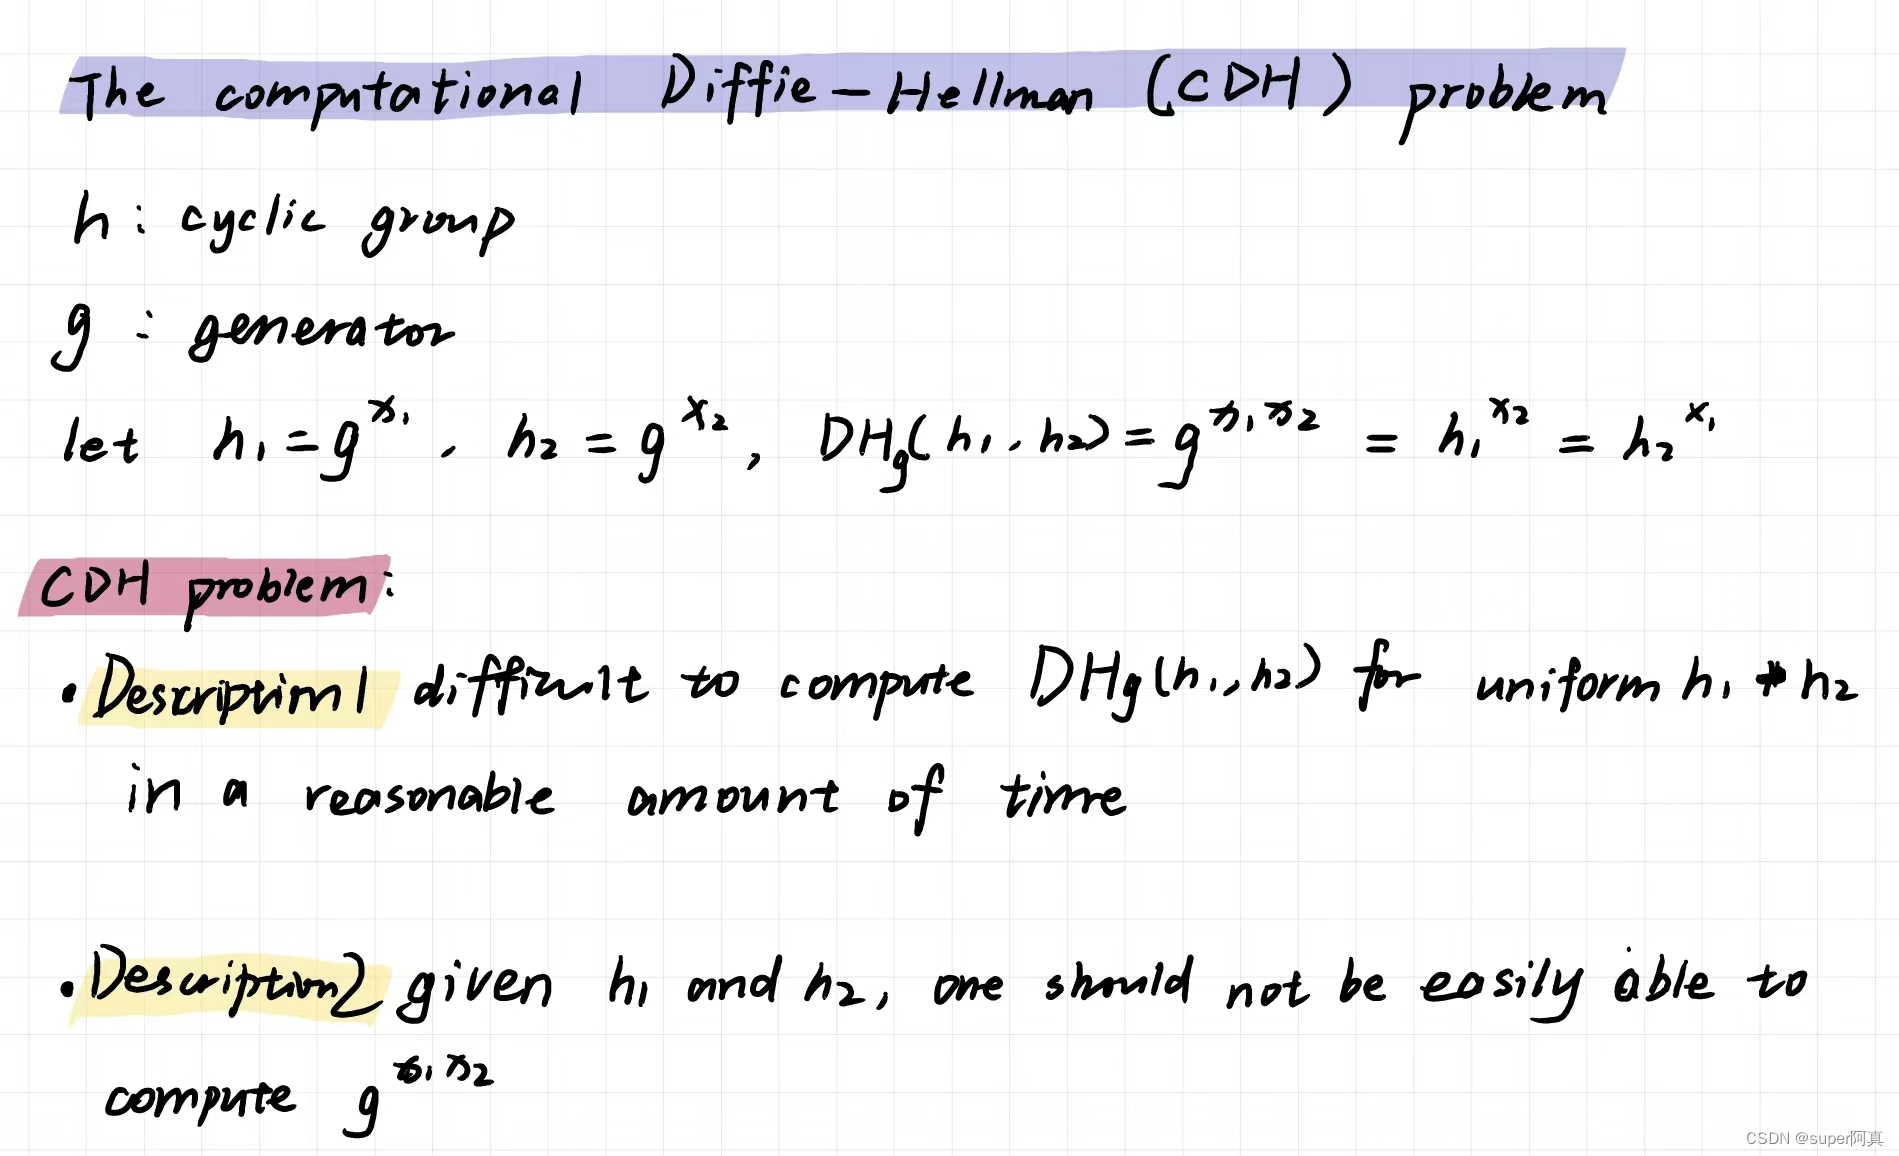 The computational Diffie-Hellman (CDH) problem
h: cyclic group
g: generator
let h₁ = g^x₁, h₂ = g^x₂, DHg(h₁, h₂) = g^x₁x₂ = h₁^x₂ = h₂^x₁
CDH problem:
• Description1 difficult to compute DHg(h₁, h₂) for uniform h₁ * h₂
in a reasonable amount of time
• Description2 given h₁ and h₂, one should not be easily able to
compute g^x₁x₂
CSDN @super阿真